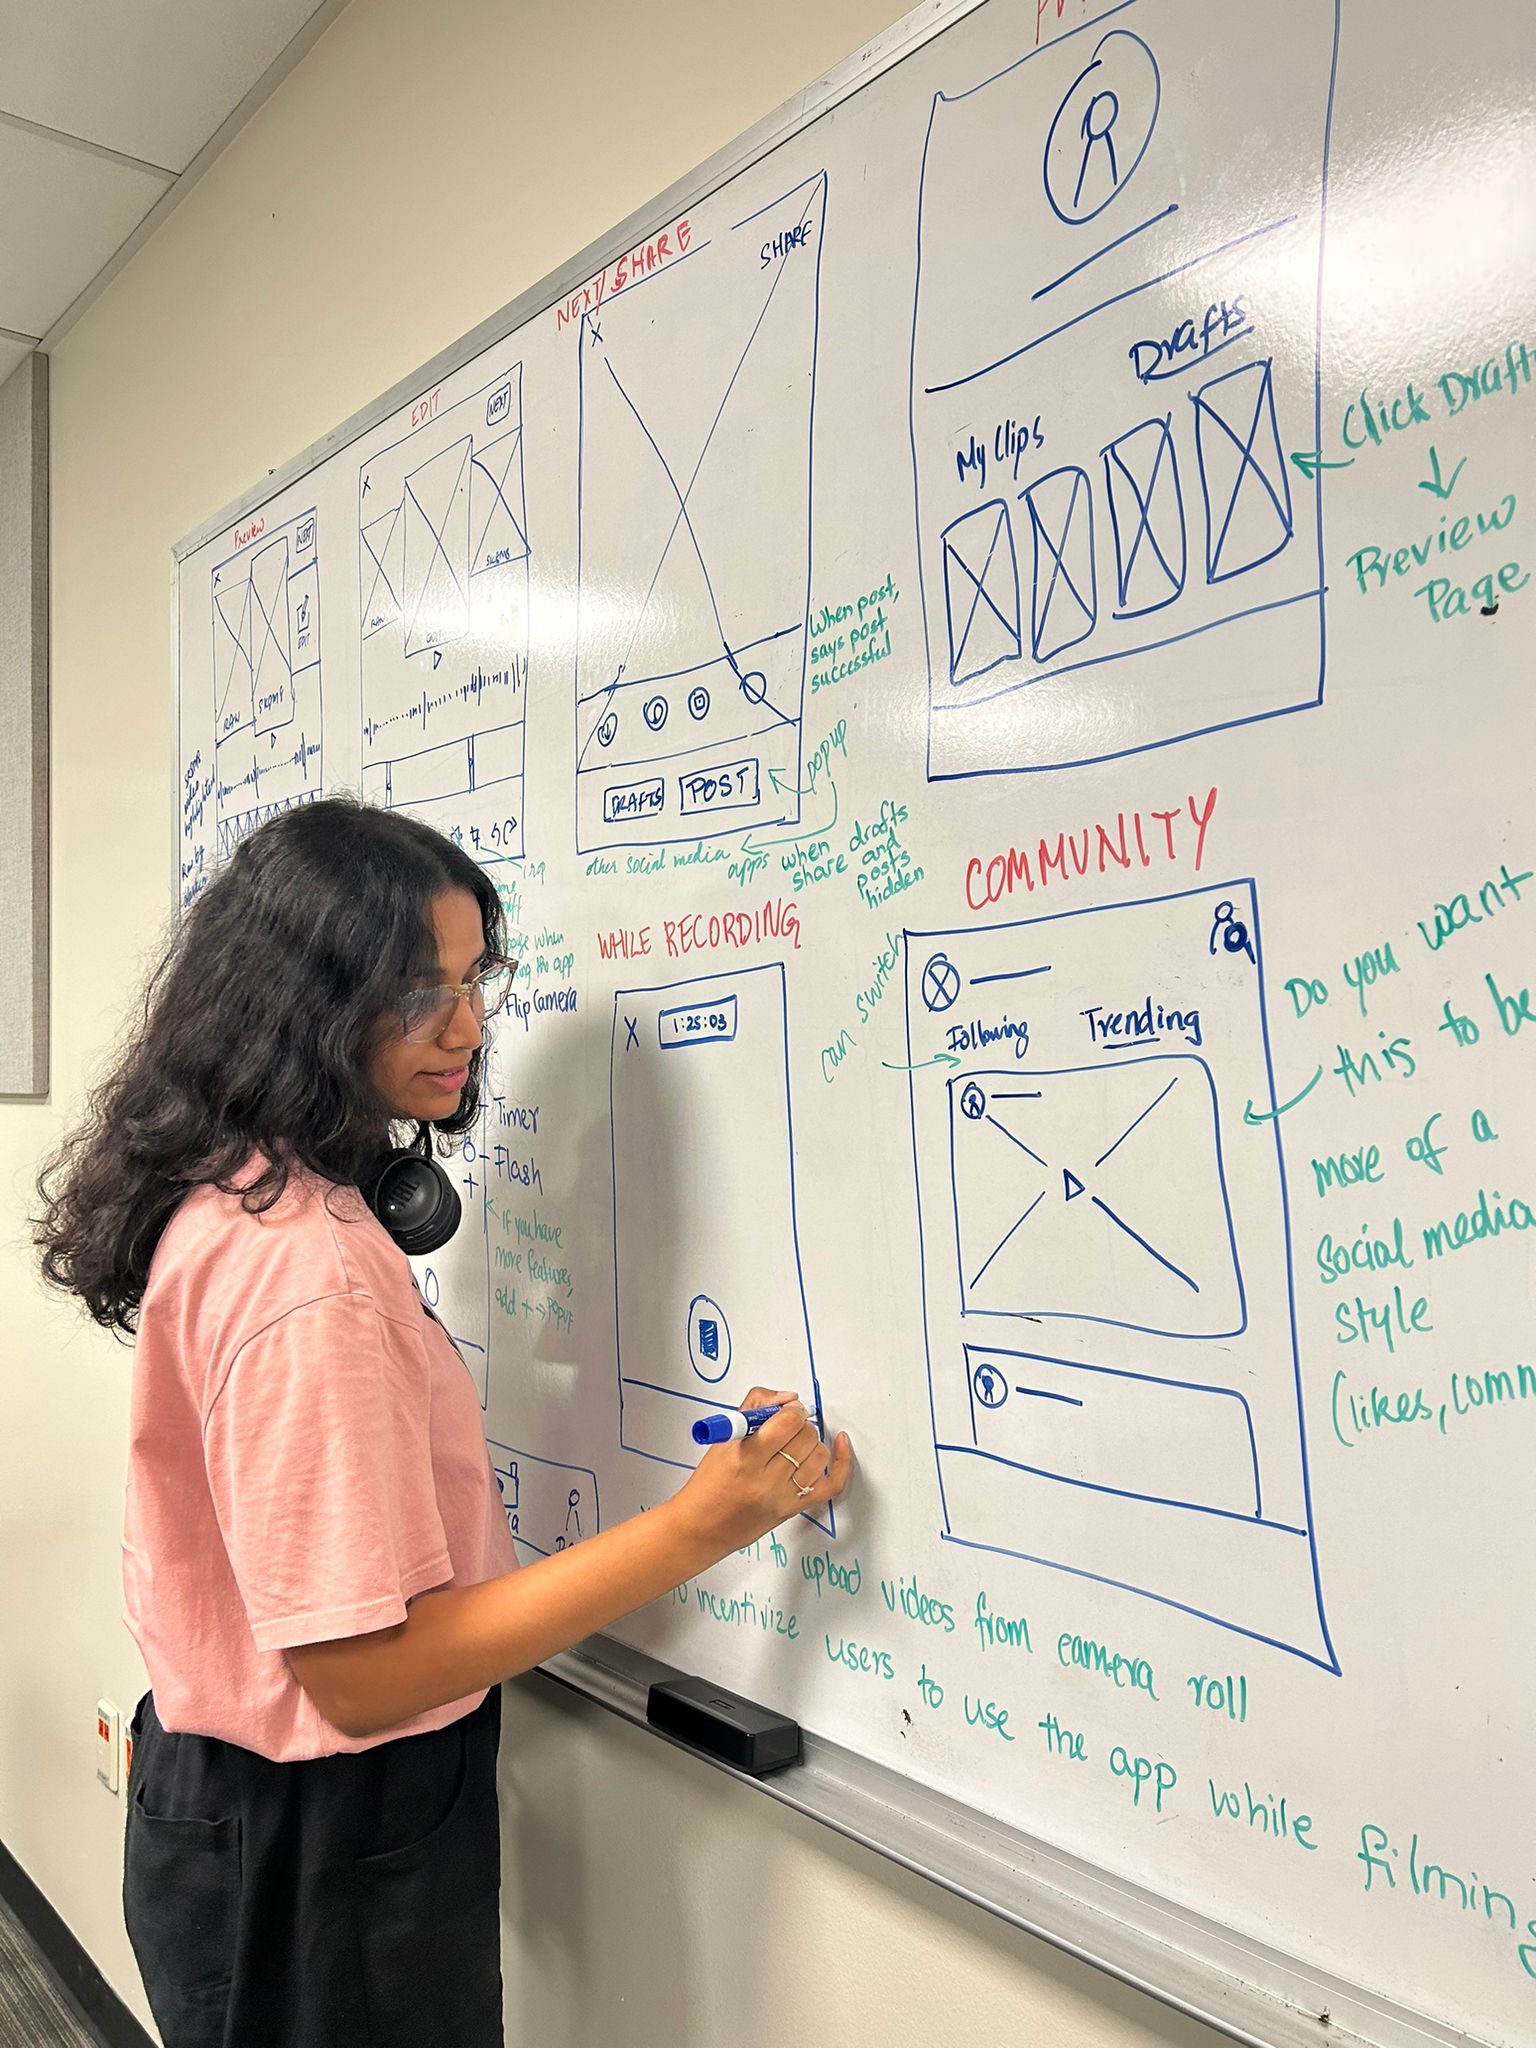 Preview
X
NEXT
EDIT
RAW
SKDMF
EDIT
X
NEXT
RAW
EDIT
NEXT/SHARE
SHARE
X
DRAFTS
POST
When post,
says post
successful
popup
other social media apps when
share drafts
and
posts
hidden
Drafts
My Clips
Click Draft
Preview
Page
Flip Camera
Timer
Flash
If you have
more features,
add + → popup
WHILE RECORDING
X
1:25:03
COMMUNITY
can switch
Following
Trending
Do you want
this to be
more of a
social media
style
(likes, comm
to upload videos from camera roll
to incentivize users to use the app while filming
JBL